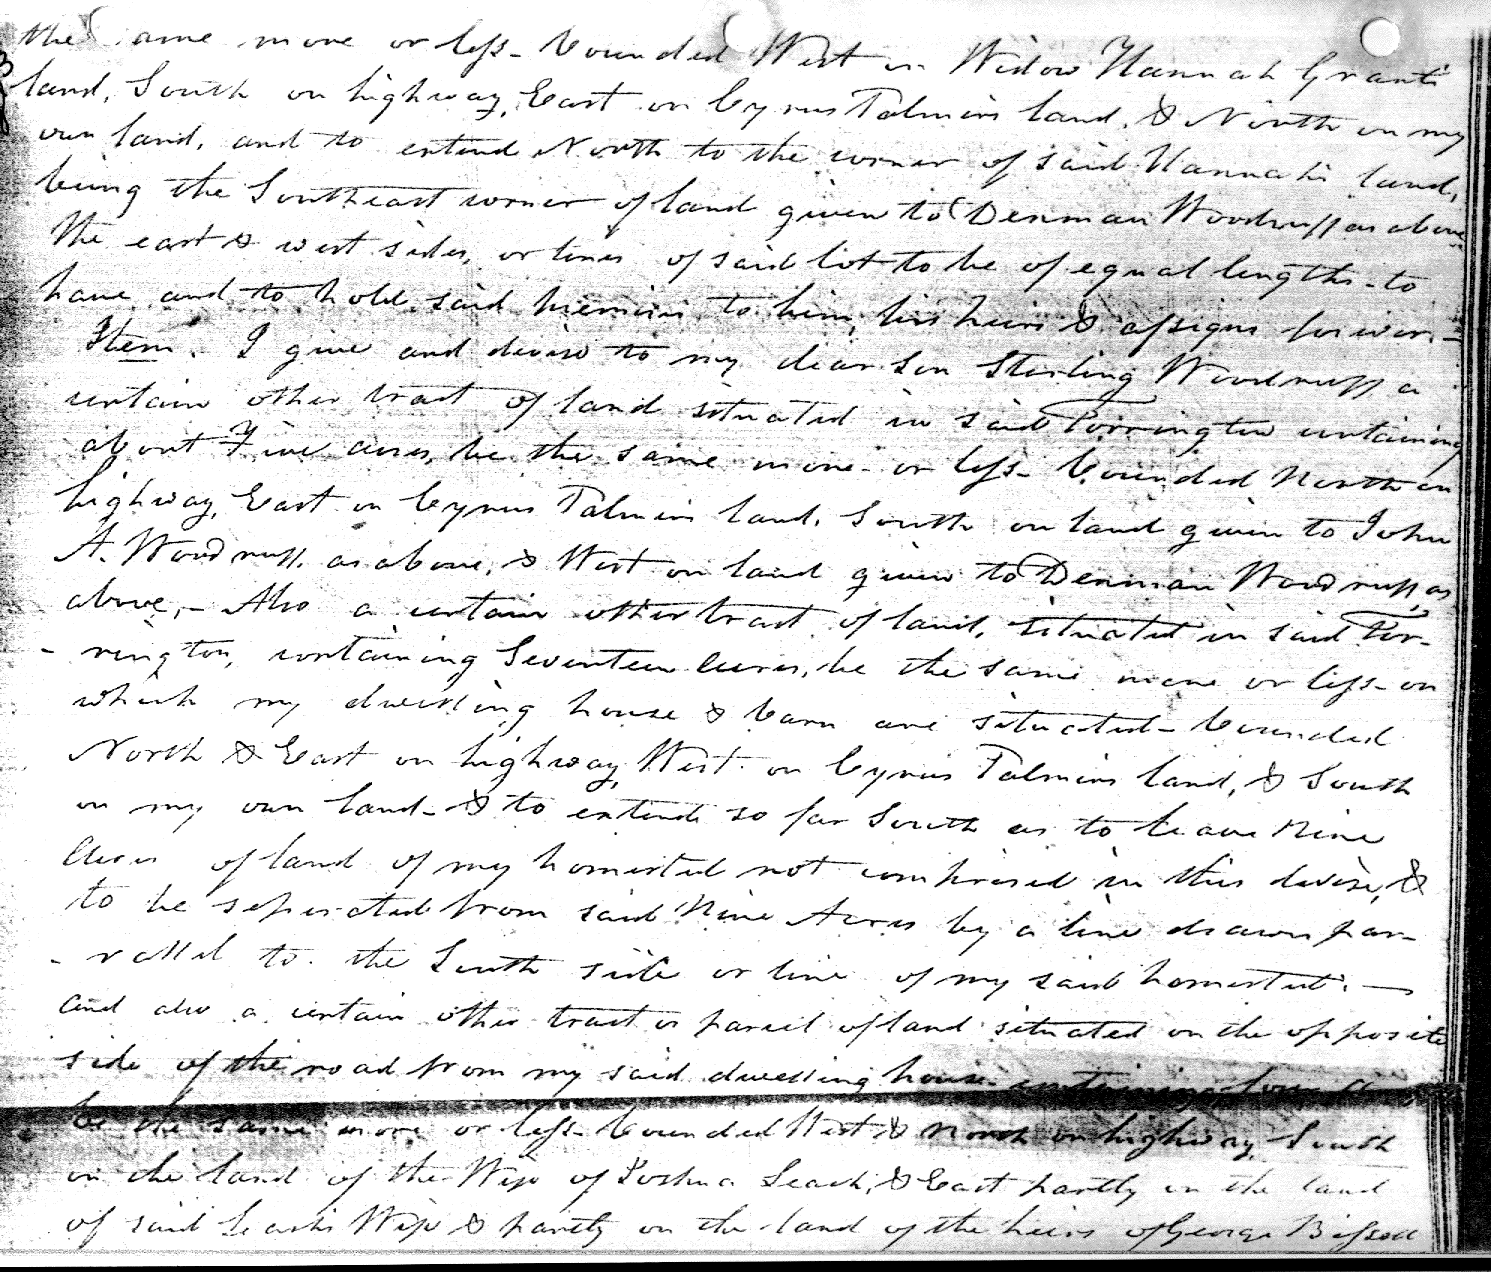 the same more or less - bounded West on Widow Hannah Grants
land, South on highway, East on Cyrus Talmins land, & North on my
own land, and to extend North to the corner of said Hannahs land,
being the Southeast corner of land given to Denman Woodruff as above
The east & west sides, or lines of said lot to be of equal lengths - to
have and to hold said premises to him, his heirs & assigns forever. -
Item. I give and devise to my dear son Sterling Woodruff a
certain other tract of land situated in said Torrington containing
about Five acres, be the same more or less - bounded North on
highway, East on Cyrus Talmins land, South on land given to John
A. Woodruff, as above, & West on land given to Denman Woodruff, as
above, - Also a certain other tract of land, situated in said Tor-
- rington, containing Seventeen acres, be the same more or less - on
which my dwelling house & barn are situated - bounded
North & East on highway, West on Cyrus Talmins land, & South
on my own land - & to extend so far South as to leave Nine
Acres of land of my homested not comprised in this devise, &
to be seperated from said Nine Acres by a line drawn par-
- rallel to the South side or line of my said homested. -
and also a certain other tract or parcel of land situated on the opposite
side of the road from my said dwelling house containing four
be the same more or less - bounded West & North on highway, South
on the land of the Wife of Joshua Leach, & East partly on the land
of said Leachs Wife & partly on the land of the heirs of George Bissell